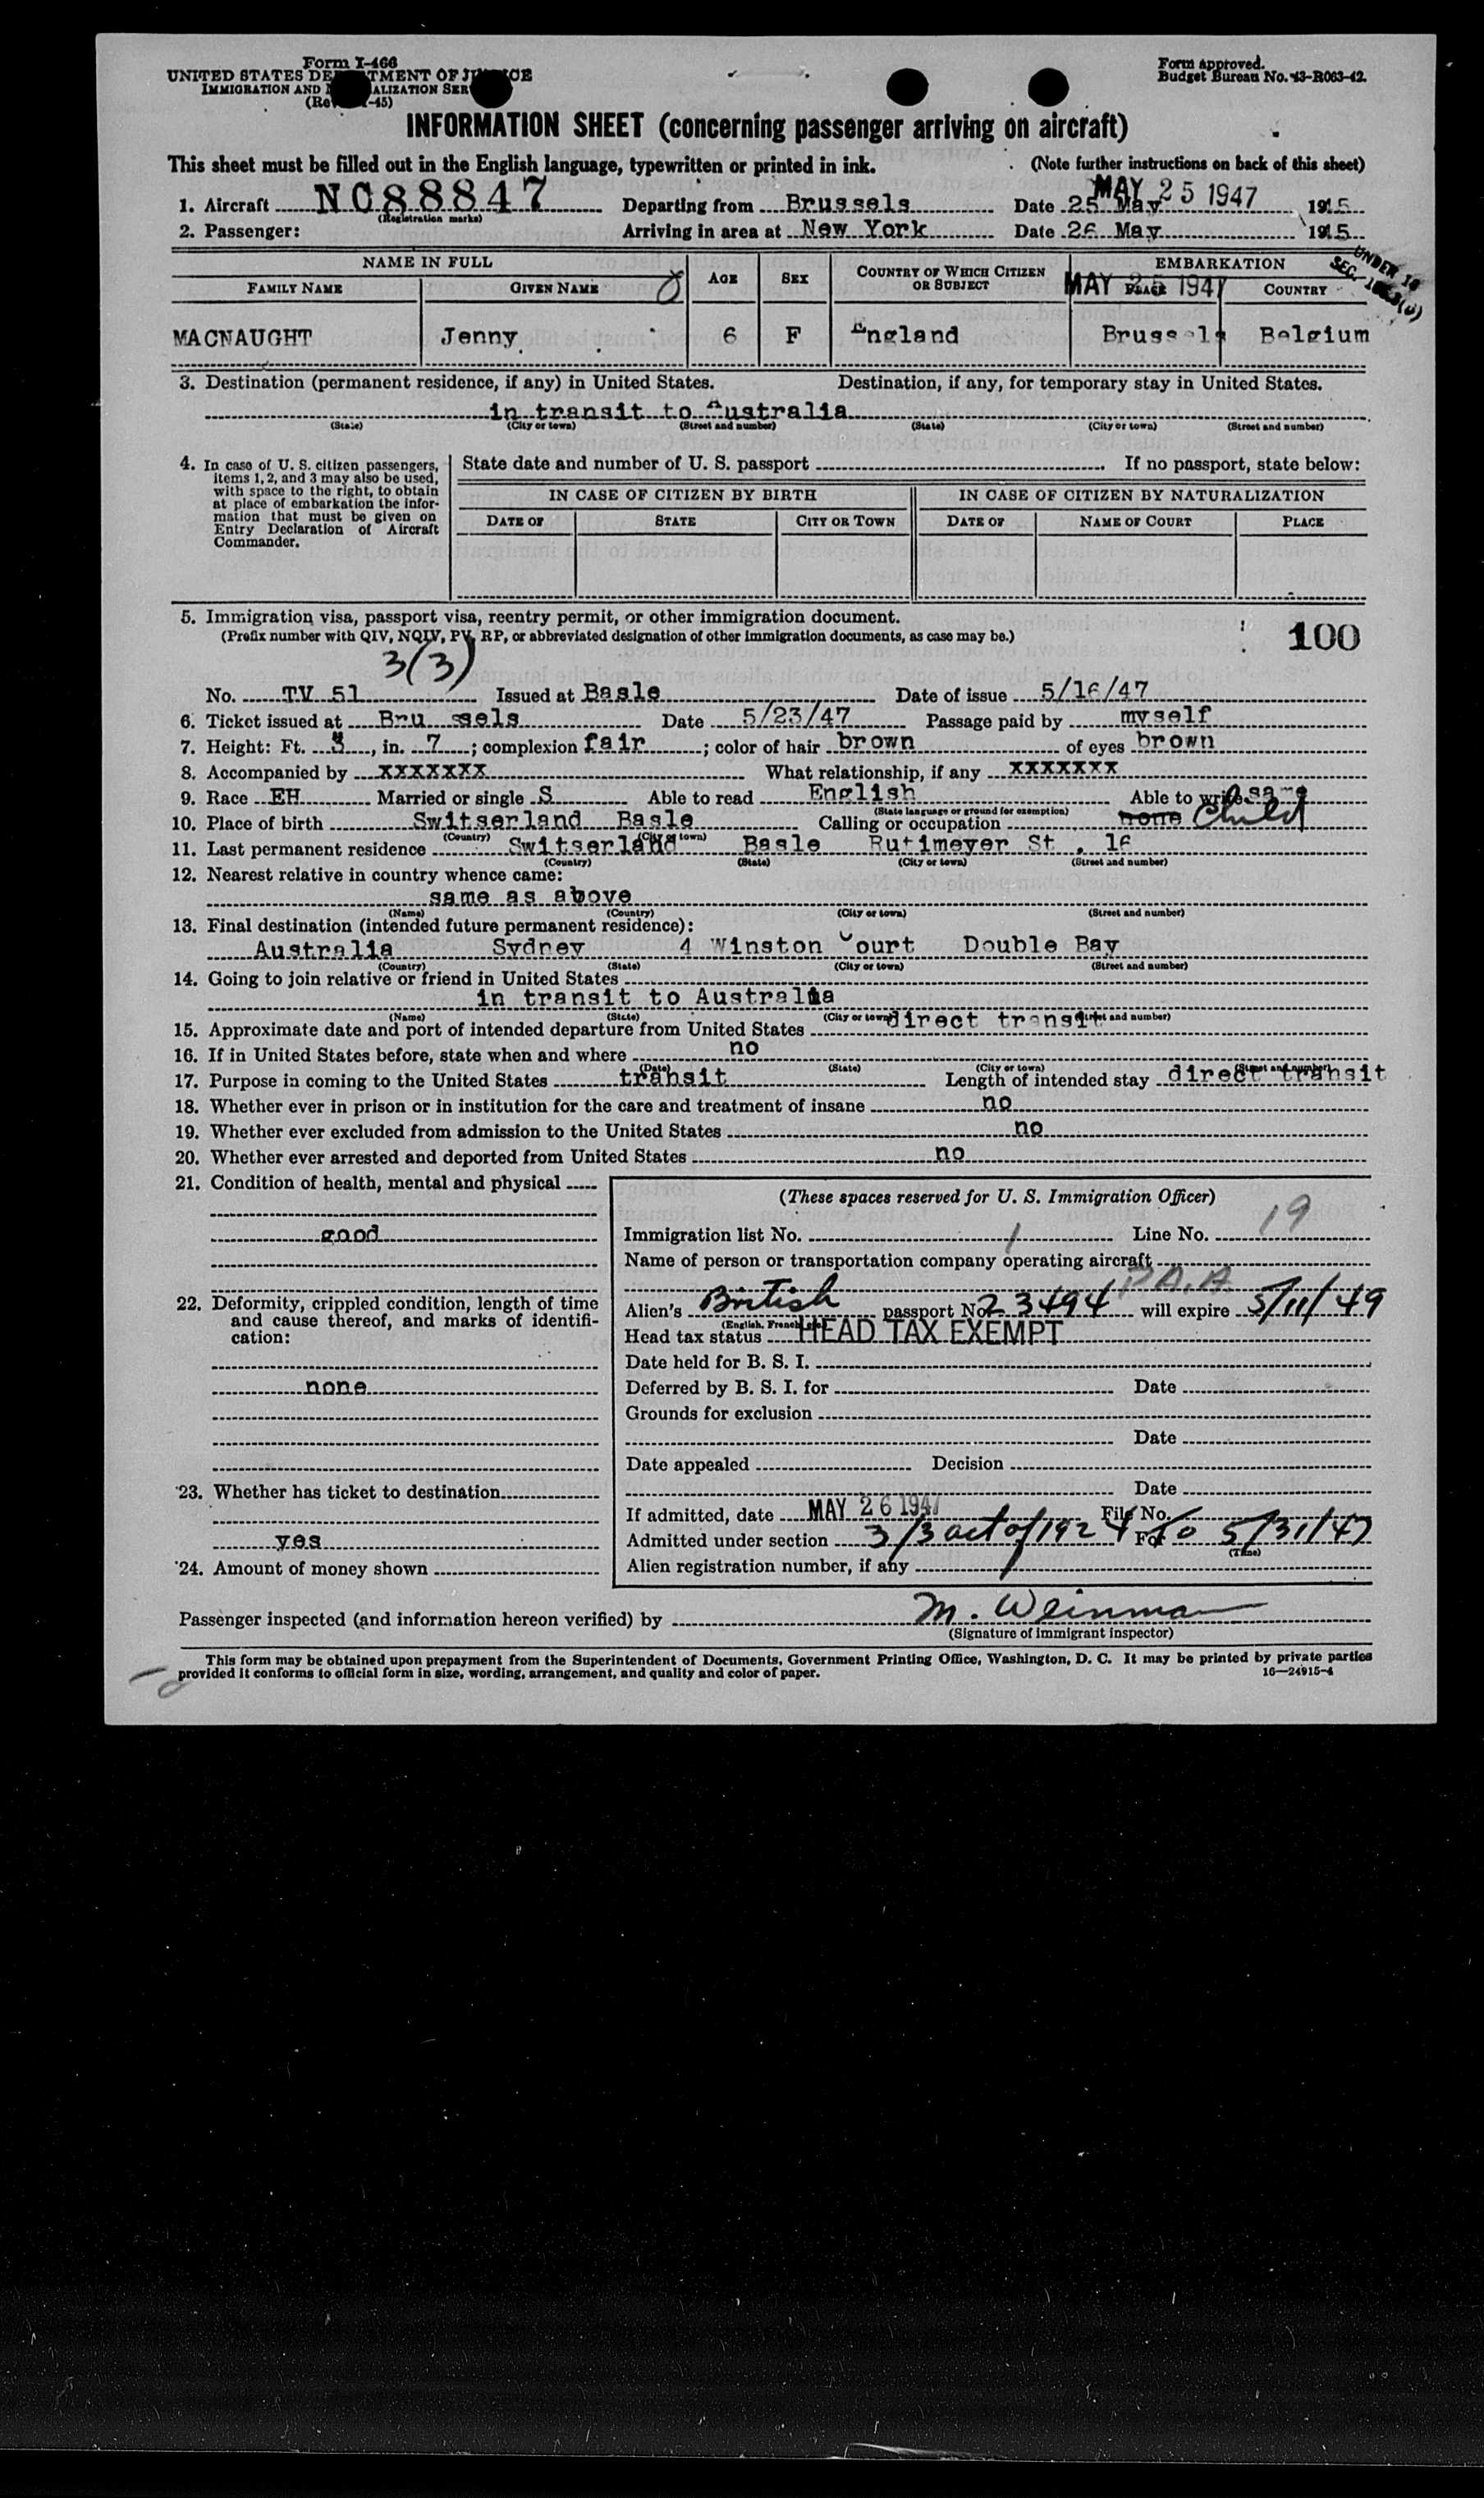 Form I-466
UNITED STATES DEPARTMENT OF JUSTICE
IMMIGRATION AND NATURALIZATION SERVICE
Form approved.
Budget Bureau No. 43-R063-42.
INFORMATION SHEET (concerning passenger arriving on aircraft)
This sheet must be filled out in the English language, typewritten or printed in ink. (Note further instructions on back of this sheet)
MAY 25 1947
1. Aircraft NC88847 Departing from Brussels Date 25 May 1945
(Registration marks)
2. Passenger: Arriving in area at New York Date 26 May 1945
NAME IN FULL AGE SEX COUNTRY OF WHICH CITIZEN OR SUBJECT EMBARKATION
UNDER 16
FAMILY NAME GIVEN NAME PLACE COUNTRY
MAY 25 1947
MACNAUGHT Jenny 6 F England Brussels Belgium
3. Destination (permanent residence, if any) in United States. Destination, if any, for temporary stay in United States.
in transit to Australia
(State) (City or town) (Street and number) (State) (City or town) (Street and number)
4. In case of U. S. citizen passengers, items 1, 2, and 3 may also be used, with space to the right, to obtain at place of embarkation the information that must be given on Entry Declaration of Aircraft Commander.
State date and number of U. S. passport If no passport, state below:
IN CASE OF CITIZEN BY BIRTH IN CASE OF CITIZEN BY NATURALIZATION
DATE OF STATE CITY OR TOWN DATE OF NAME OF COURT PLACE
5. Immigration visa, passport visa, reentry permit, or other immigration document.
(Prefix number with QIV, NQIV, PV, RP, or abbreviated designation of other immigration documents, as case may be.)
100
3(3)
No. TV 51 Issued at Basle Date of issue 5/16/47
6. Ticket issued at Bru ssels Date 5/23/47 Passage paid by myself
7. Height: Ft. 3, in. 7; complexion fair; color of hair brown of eyes brown
8. Accompanied by XXXXXXX What relationship, if any XXXXXXX
9. Race EH Married or single S Able to read English Able to write same
(State language or ground for exemption)
10. Place of birth Switserland Basle Calling or occupation none Child
(Country) (City or town)
11. Last permanent residence Switserland Basle Rutimeyer St. 16
(Country) (State) (City or town) (Street and number)
12. Nearest relative in country whence came:
same as above
(Name) (Country) (City or town) (Street and number)
13. Final destination (intended future permanent residence):
Australia Sydney 4 Winston Court Double Bay
(Country) (State) (City or town) (Street and number)
14. Going to join relative or friend in United States
in transit to Australia
(Name) (State) (City or town) (Street and number)
15. Approximate date and port of intended departure from United States direct transit
16. If in United States before, state when and where no
(Date) (State) (City or town) (Street and number)
17. Purpose in coming to the United States transit Length of intended stay direct transit
18. Whether ever in prison or in institution for the care and treatment of insane no
19. Whether ever excluded from admission to the United States no
20. Whether ever arrested and deported from United States no
21. Condition of health, mental and physical
good
22. Deformity, crippled condition, length of time and cause thereof, and marks of identification:
none
23. Whether has ticket to destination
yes
24. Amount of money shown
(These spaces reserved for U. S. Immigration Officer)
Immigration list No. 1 Line No. 19
Name of person or transportation company operating aircraft
P.A.A.
Alien's British passport No. 23494 will expire 5/11/49
(English, French, etc.)
Head tax status HEAD TAX EXEMPT
Date held for B. S. I.
Deferred by B. S. I. for Date
Grounds for exclusion
Date
Date appealed Decision
Date
If admitted, date MAY 26 1947 File No.
Admitted under section 3/3 act of 1924 For to 5/31/47
(Time)
Alien registration number, if any
Passenger inspected (and information hereon verified) by M. Weinman
(Signature of immigrant inspector)
This form may be obtained upon prepayment from the Superintendent of Documents, Government Printing Office, Washington, D. C. It may be printed by private parties
provided it conforms to official form in size, wording, arrangement, and quality and color of paper. 16—24915-4